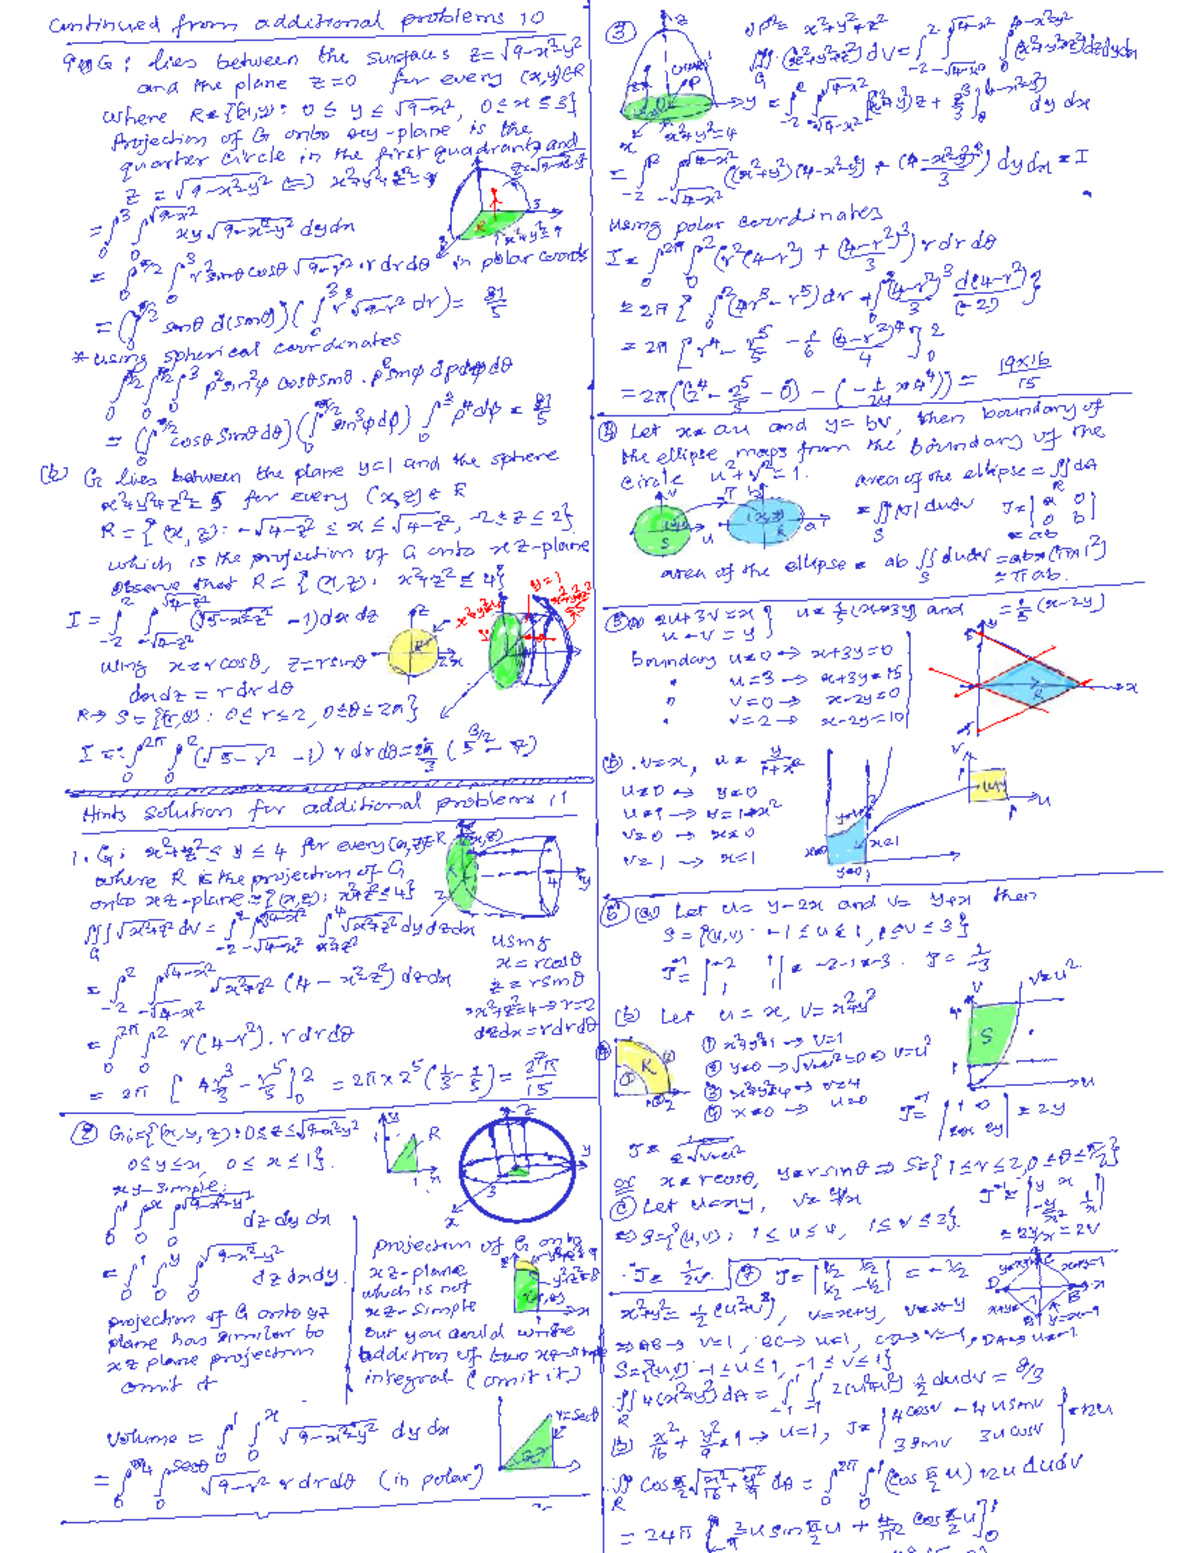 Continued from additional problems 10
G: lies between the surfaces z=√9-x²-y²
and the plane z=0 for every (x,y)∈R
where R={(x,y): 0 ≤ y ≤ √9-x², 0≤x≤3}
Projection of G onto xy-plane is the
quarter circle in the first quadrant and
z = √9-x²-y² ⇔ x²+y²+z²=9
z=√9-x²-y²
= ∫₀³ ∫₀^√9-x² xy√9-x²-y² dydx
R
3
x²+y²=9
= ∫₀^π/2 ∫₀³ r² sinθ cosθ √9-r² r dr dθ in polar coords
= (∫₀^π/2 sinθ d(sinθ)) (∫₀³ r³√9-r² dr) = 81/5
* using spherical coordinates
∫₀^π/2 ∫₀^π/2 ∫₀³ ρ²sin²φ cosθsinθ · ρ²sinφ dρdφdθ
= (∫₀^π/2 cosθ sinθ dθ) (∫₀^π/2 sin³φdφ) ∫₀³ ρ⁴dρ = 81/5
(b) G lies between the plane y=1 and the sphere
x²+y²+z²=5 for every (x,z) ∈ R
R = {(x,z): -√4-z² ≤ x ≤ √4-z², -2≤z≤2}
which is the projection of G onto xz-plane
observe that R = {(x,z): x²+z² ≤ 4}
y=1
I = ∫₋₂² ∫_-√4-z²^√4-z² (√5-x²-z² -1)dxdz
using x=rcosθ, z=rsinθ
dxdz = r dr dθ
R→ S={(r,θ): 0≤r≤2, 0≤θ≤2π}
I = ∫₀^2π ∫₀² (√5-r² -1) r dr dθ = 2π/3 (5^3/2 - 7)
Hints solution for additional problems 11
1. G: x²+z² ≤ y ≤ 4 for every (x,z)∈R
where R is the projection of G
onto xz-plane = {(x,z): x²+z²≤4}
4
y
∭_G √x²+z² dV = ∫₋₂² ∫_-√4-x²^√4-x² ∫_x²+z²^4 √x²+z² dy dzdx
= ∫₋₂² ∫_-√4-x²^√4-x² √x²+z² (4-x²-z²) dzdx
using
x=rcosθ
z=rsinθ
x²+z²=4→r=2
dzdx=rdrdθ
= ∫₀^2π ∫₀² r(4-r²). r dr dθ
= 2π [4r³/3 - r⁵/5]₀² = 2π×2⁵(1/3-1/5) = 2⁷π/15
(2) G:={(x,y,z): 0≤z≤√9-x²-y²
0≤y≤x, 0≤x≤1}.
xy-simple:
∫₀¹ ∫₀ˣ ∫₀^√9-x²-y² dz dy dx
= ∫₀¹ ∫ ∫₀^√9-x²-y² dz dxdy
projection of G onto yz
plane has similar to
xz plane projection
omit it
projection of G onto
xz-plane
which is not
xz-simple
but you could write
addition of two xz-simple
integral (omit it)
Volume = ∫₀¹ ∫₀ˣ √9-x²-y² dy dx
r=secθ
= ∫₀^π/4 ∫₀^secθ √9-r² r dr dθ (in polar)
(3)
z
y
x
x²+y²=4
ρ²= x²+y²+z²
∭_G (x²+y²+z²) dV = ∫₋₂² ∫_-√4-x²^√4-x² ∫₀^4-x²-y² (x²+y²+z²)dzdydx
= ∫₋₂² ∫_-√4-x²^√4-x² [(x²+y²)z + z³/3]₀^4-x²-y² dy dx
= ∫₋₂² ∫_-√4-x²^√4-x² ((x²+y²)(4-x²-y²) + (4-x²-y²)³/3) dydx = I
Using polar coordinates
I = ∫₀^2π ∫₀² (r²(4-r²) + (4-r²)³/3) r dr dθ
= 2π { ∫₀² (4r³-r⁵)dr + ∫₀² (4-r²)³/3 d(4-r²)/(-2) }
= 2π [r⁴ - r⁵/5 - 1/6 (4-r²)⁴/4]₀²
= 2π((2⁴ - 2⁵/5 - 0) - (-1/24 ×4⁴)) = 19×16/15
(4) Let x=au and y=bv, then boundary of
the ellipse maps from the boundary of the
circle u²+v²=1.
area of the ellipse = ∬_R dA
= ∬_S |J| dudv J = |a 0|
|0 b|
= ab
S
u
v
T
(x,y)
R
area of the ellipse = ab ∬_S dudv = ab×(π×1²)
= πab.
(5)(a) 2u+3v=x
u-v=y } u=1/5(x+3y) and v=1/5(x-2y)
boundary u=0 → x+3y=0
" u=3 → x+3y=15
" v=0 → x-2y=0
" v=2 → x-2y=10
R
x
(b) v=x, u= y/1+x²
u=0 → y=0
u=1 → y=1+x²
v=0 → x=0
v=1 → x=1
x=1
y=0
u
(6)(a) Let u= y-2x and v= y+x then
S={(u,v): -1≤u≤1, 1≤v≤3}
J⁻¹= |-2 1|
|1 1| = -2-1=-3. J= 1/-3
(b) Let u=x, v=x²+y²
R
① x²+y²=1→v=1
② y=0→√v-u²=0⇒v=u²
③ x²+y²=4→v=4
④ x=0→u=0
v=u²
S
u
J⁻¹= |1 0|
|2x 2y| = 2y
J= 1/2√v-u²
or x=rcosθ, y=rsinθ ⇒ S={1≤r≤2, 0≤θ≤π/2}
(c) Let u=xy, v=y/x
⇒ S={(u,v): 1≤u≤4, 1≤v≤3}.
J⁻¹= |y x|
|-y/x² 1/x|
= 2y/x = 2v
∴ J= 1/2v.
(7) J= |1/2 1/2|
|1/2 -1/2| = -1/2
x²+y²= 1/2(u²+v²), u=x+y, v=x-y
⇒ AB→ v=1, BC→u=1, CD→v=-1, DA→u=-1
S={(u,v): -1≤u≤1, -1≤v≤1}
∬_R 4(x²+y²)dA = ∫₋₁¹ ∫₋₁¹ 2(u²+v²) 1/2 dudv = 8/3
(b) x²/16 + y²/9=1→u=1, J= |4cosv -4usinv|
|3sinv 3ucosv| = 12u
∬_R cos π/2 √x²/16+y²/9 dA = ∫₀^2π ∫₀¹ (cos π/2 u) 12u dudv
= 24π [2/π u sin π/2 u + 4/π² cos π/2 u]₀¹